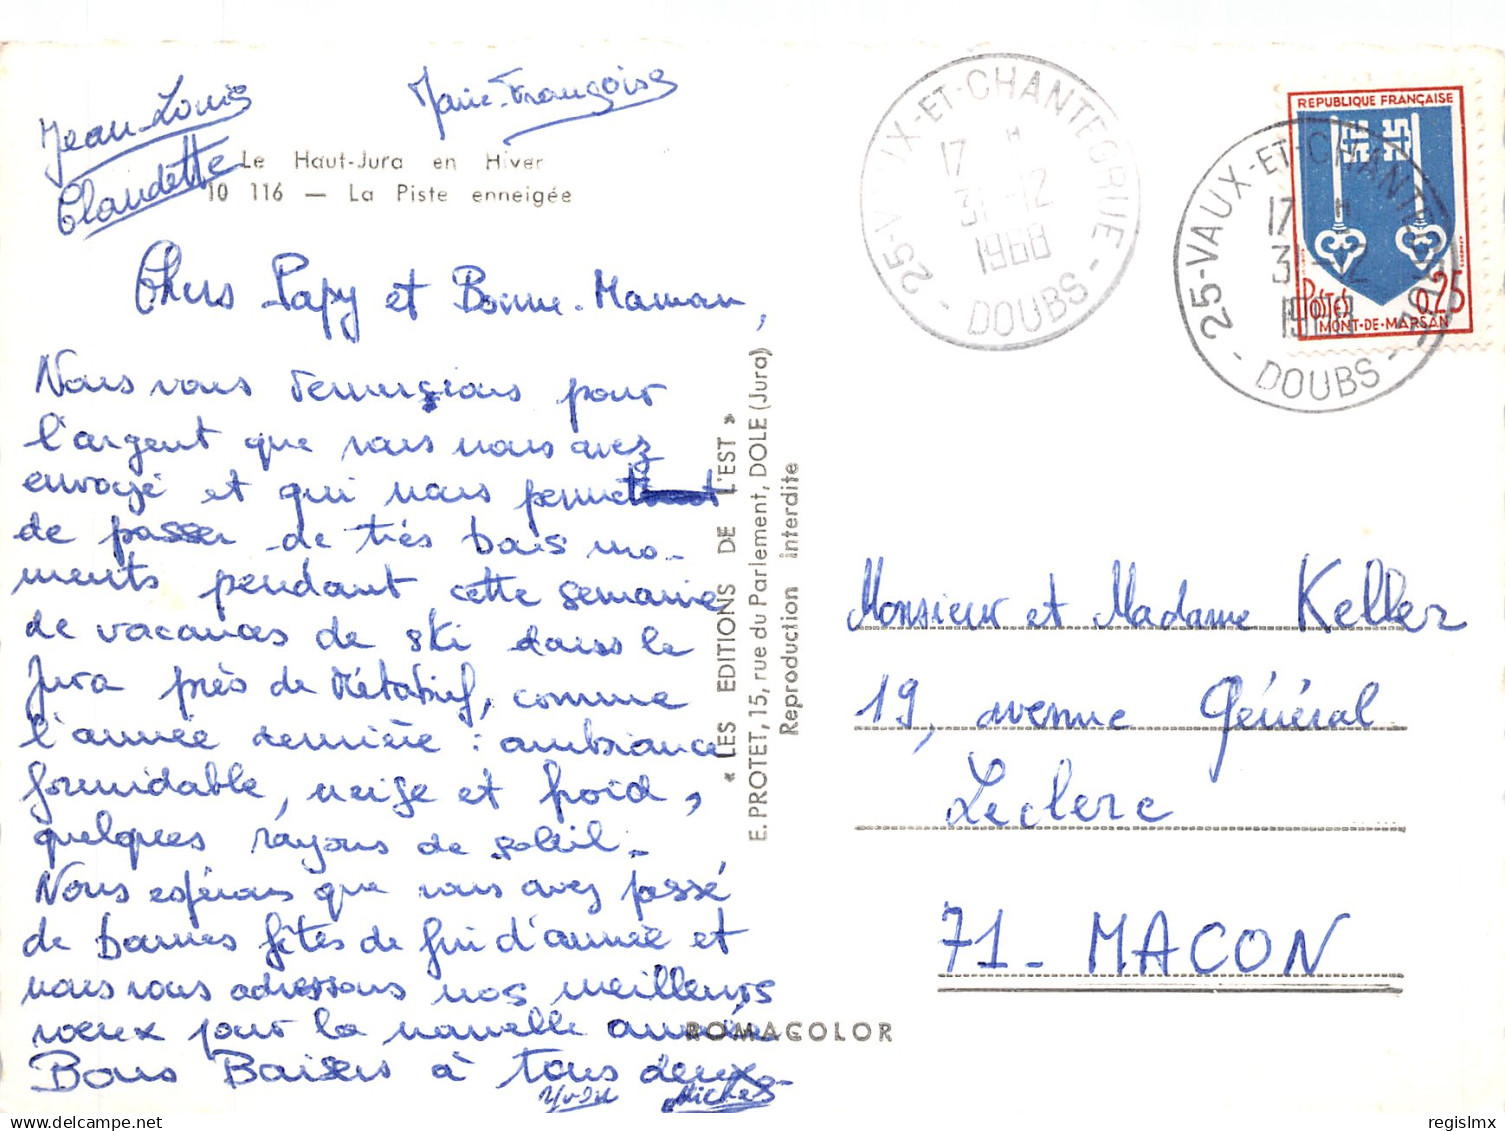 Jean-Louis
Marie-Françoise
Claudette
Le Haut-Jura en Hiver
10 116 — La Piste enneigée
Chers Papy et Bonne-Maman,
Nous vous remercions pour
l'argent que vous nous avez
envoyé et qui nous permet
de passer de très bons mo-
ments pendant cette semaine
de vacances de ski dans le
Jura près de Métabief, comme
l'année dernière : ambiance
formidable, neige et froid,
quelques rayons de soleil.
Nous espérons que vous avez passé
de bonnes fêtes de fin d'année et
nous vous adressons nos meilleurs
voeux pour la nouvelle année
Bons Baisers à tous deux
Michel
« LES EDITIONS DE L'EST »
E. PROTET, 15, rue du Parlement, DOLE (Jura)
Reproduction interdite
ROMACOLOR
25-VAUX-ET-CHANTEGRUE
17 H
31-12
1968
- DOUBS -
25-VAUX-ET-CHANTEGRUE
17 H
31-12
1968
- DOUBS -
REPUBLIQUE FRANÇAISE
Postes
0,25
MONT-DE-MARSAN
Monsieur et Madame Keller
19, avenue Général
Leclerc
71- MACON
regislmx